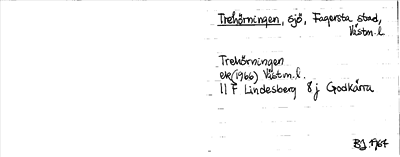 Trehörningen, sjö, Fagersta stad,
Västm. l.
Trehörningen
ek (1966) Västm. l.
11 F Lindesberg 8 j Godkärra
BJ 1967